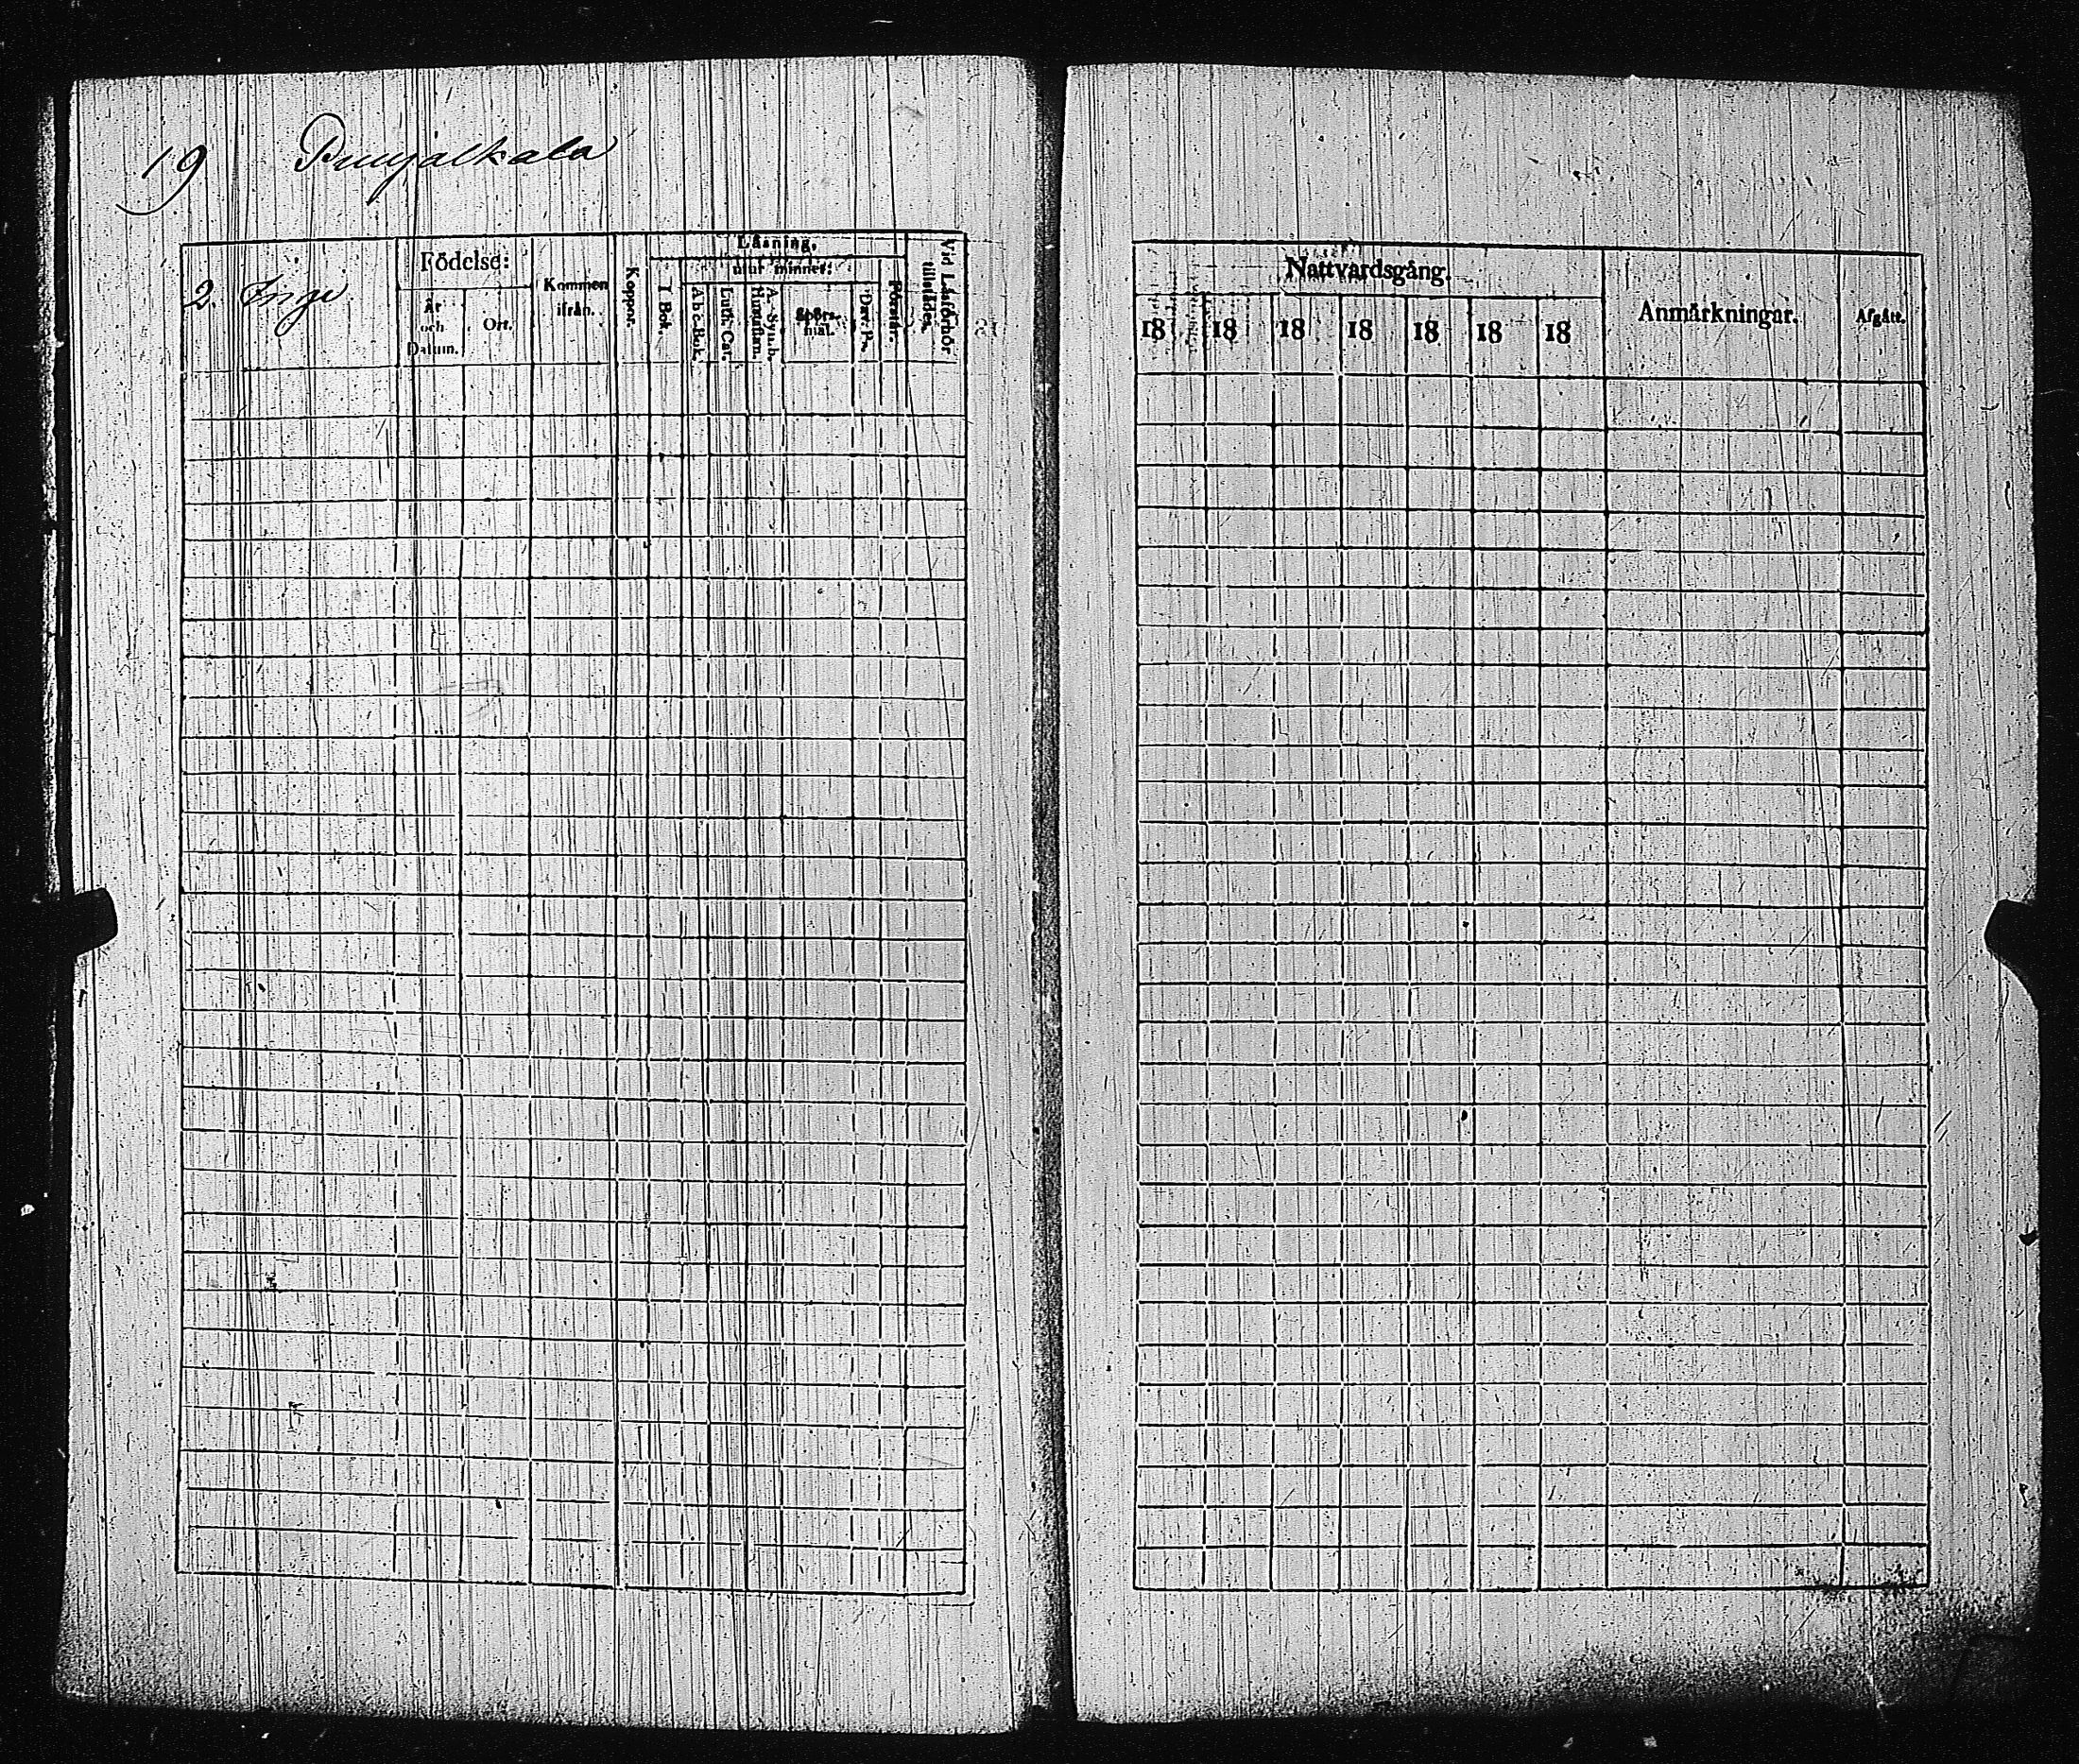 19 Puujalkala
2. Inge
Födelse:
År och Datum.
Ort.
Kommen ifrån.
Koppor.
Läsning,
utur minnet:
I Bok.
A b c-Bok.
Luth. Cat.
A. Symb.
Hustaflan.
Spörs-mål.
Dav. Ps.
Förstår.
Vid Läsförhör tillstädes.
Nattvardsgång.
18 18 18 18 18 18 18
Anmärkningar.
Afgått.